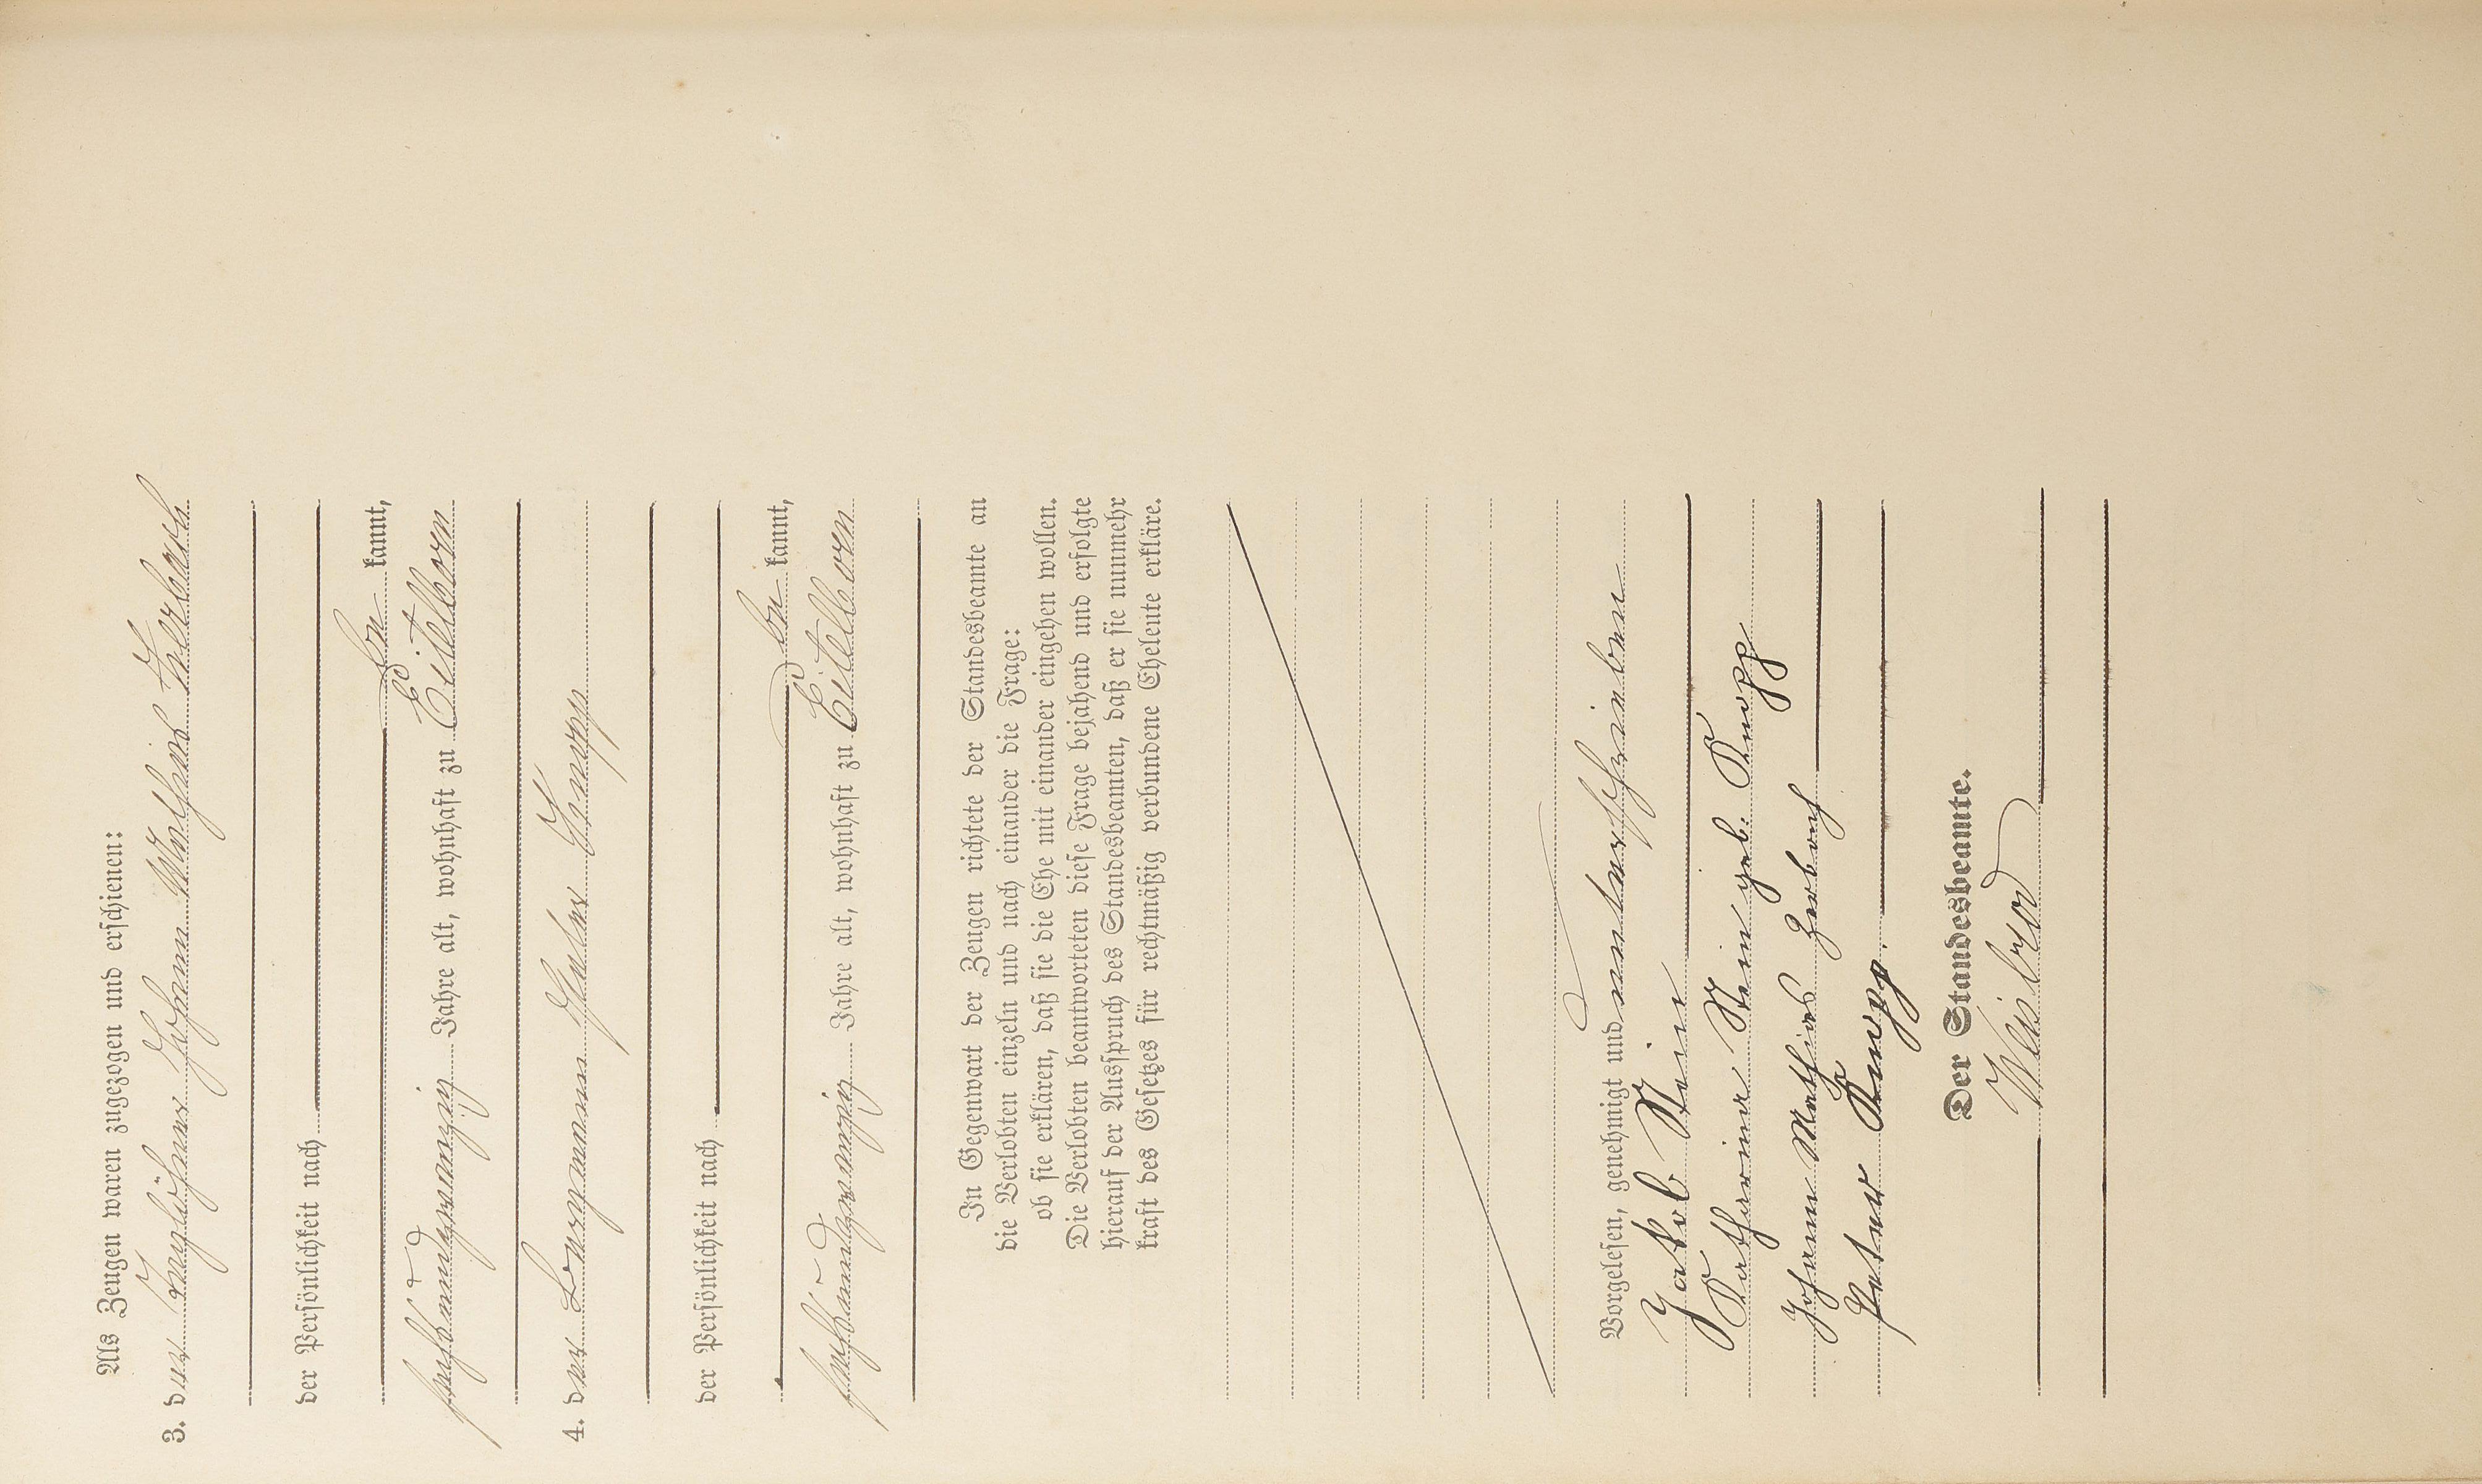 Als Zeugen waren zugezogen und erschienen:
3. der Taglöhner Johann Mathias Herbach
der Persönlichkeit nach
be kannt,
sechsundzwanzig Jahre alt, wohnhaft zu Eitelborn
4. der Bergmann Peter Knopp
der Persönlichkeit nach
be kannt,
sechsundzwanzig Jahre alt, wohnhaft zu Eitelborn
In Gegenwart der Zeugen richtete der Standesbeamte an
die Verlobten einzeln und nach einander die Frage:
ob sie erklären, daß sie die Ehe mit einander eingehen wollen.
Die Verlobten beantworteten diese Frage bejahend und erfolgte
hierauf der Ausspruch des Standesbeamten, daß er sie nunmehr
kraft des Gesetzes für rechtmäßig verbundene Eheleute erkläre.
Vorgelesen, genehmigt und unterschrieben
Jakob Stein
Katharina Stein geb. Knopp
Johann Mathias Herbach
Peter Knopp.
Der Standesbeamte.
Weisbrod